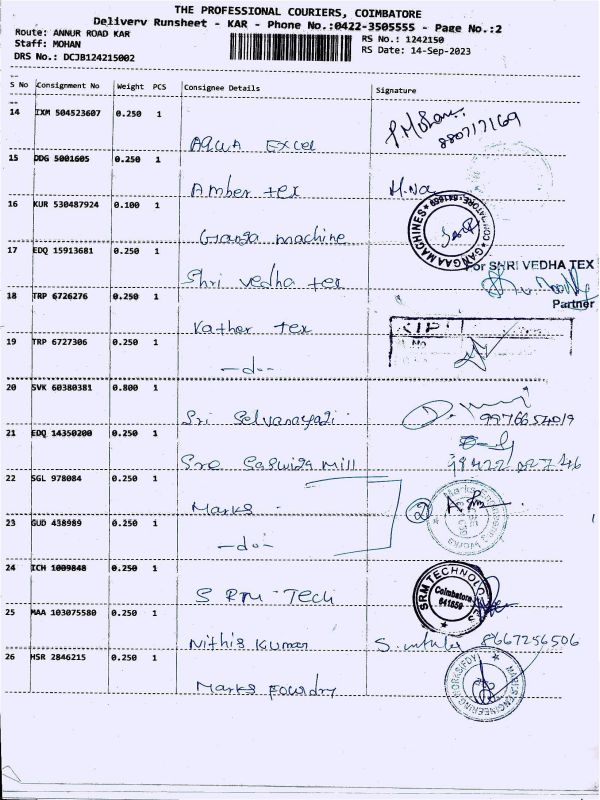 THE PROFESSIONAL COURIERS, COIMBATORE
Delivery Runsheet - KAR - Phone No.:0422-3505555 - Page No.:2
Route: ANNUR ROAD KAR
RS No.: 1242150
Staff: MOHAN
RS Date: 14-Sep-2023
DRS No.: DCJB124215002
S No Consignment No Weight PCS Consignee Details Signature
14 IXM 504523607 0.250 1
AQUA EXCEL
P. Mohan
8807171169
15 DDG 5001605 0.250 1
Amber tex
16 KUR 530487924 0.100 1
Ganga machine
GANGAA MACHINES COIMBATORE-641659
17 EDQ 15913681 0.250 1
Shri vedha tex
For SHRI VEDHA TEX
Partner
18 TRP 6726276 0.250 1
Kathor tex
19 TRP 6727306 0.250 1
-do-
20 SVK 60380381 0.800 1
Sri Selvanayagi
9976654019
21 EDQ 14350200 0.250 1
Mill
22 SGL 978084 0.250 1
Marks
Marks Engineering Works
23 GUD 438989 0.250 1
-do-
24 ICH 1009848 0.250 1
S RM-Tech
SRM TECHNOLOGIES Coimbatore 641659
25 MAA 103075580 0.250 1
Nithis Kumar
8667256506
26 HSR 2846215 0.250 1
Marks Foundry